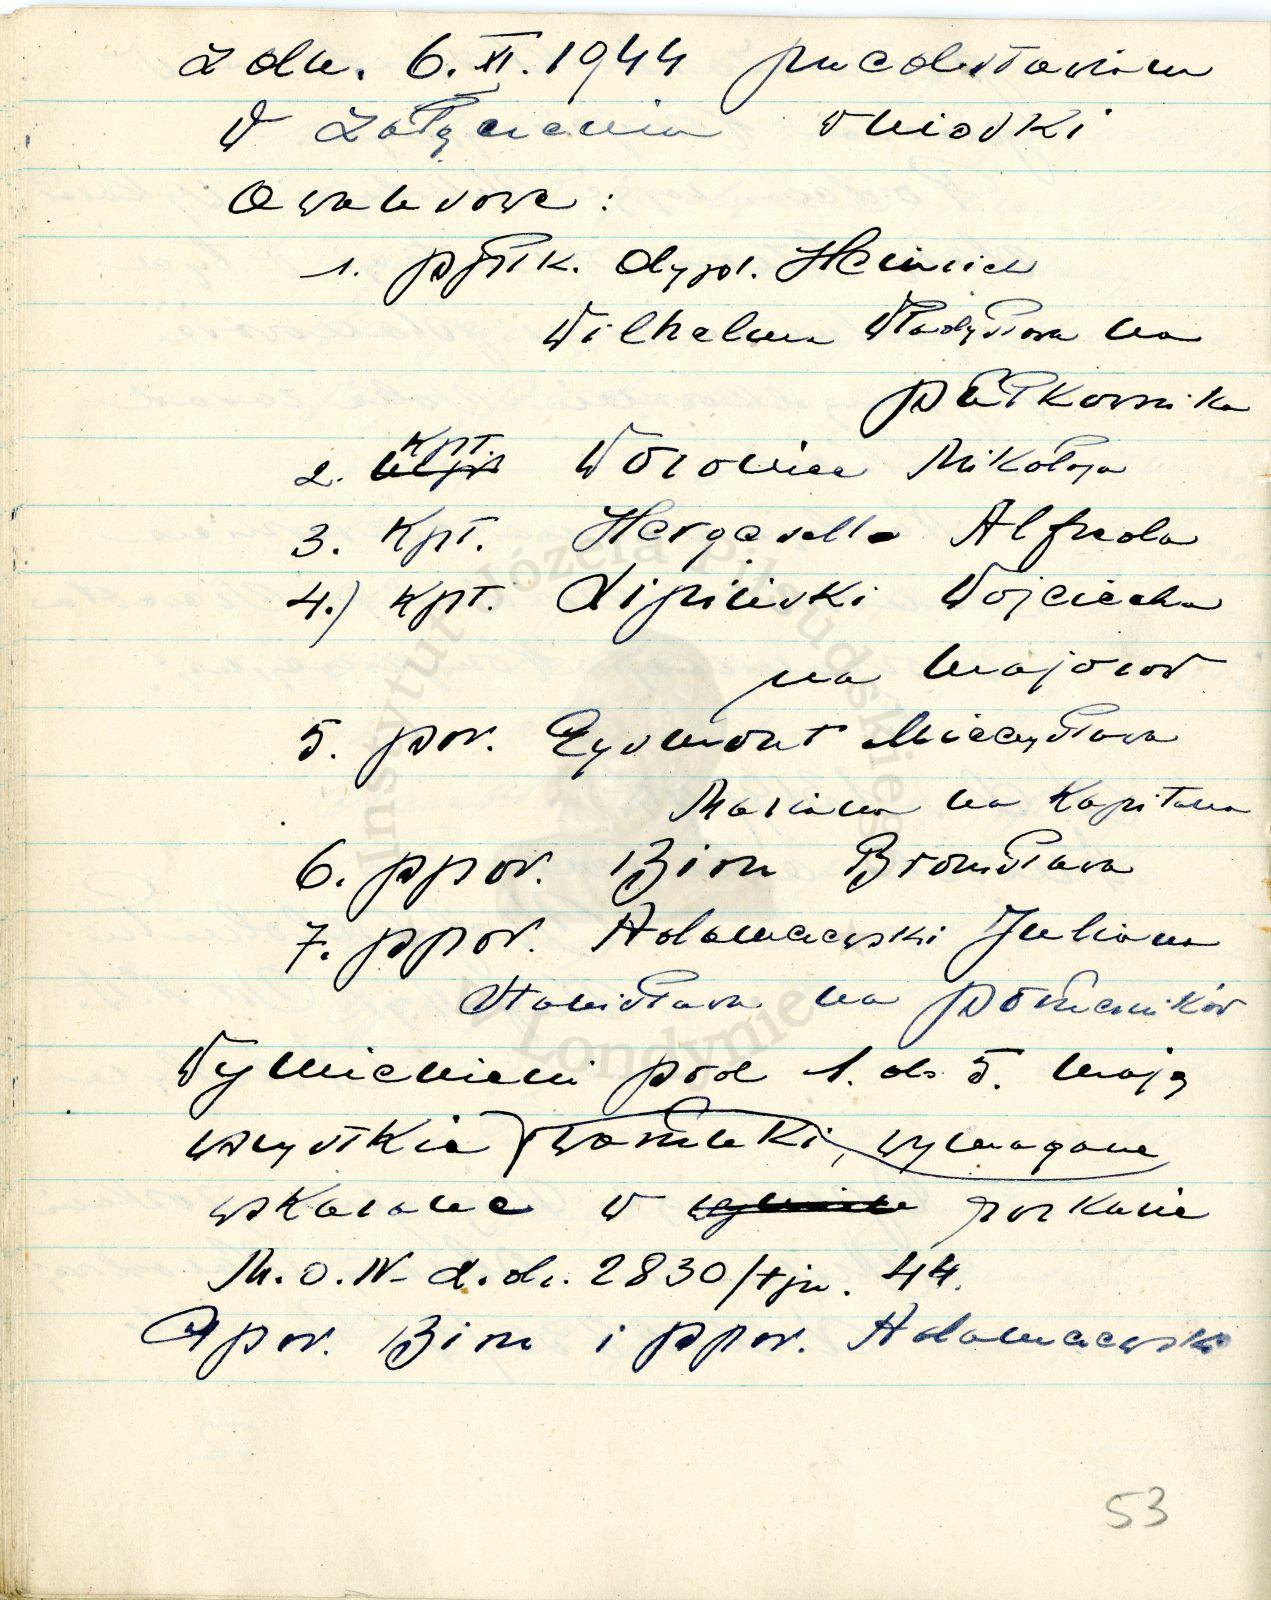 z dn. 6.XI.1944 przedstawiam
w załączeniu wnioski
awansowe:
1. ppłk. dypl. Heinrich
Wilhelma Władysława na
pułkownika
2. kpt. Woronicz Mikołaja
3. kpt. Hergesella Alfreda
4.) kpt. Lipiński Wojciecha
na majorów
5. por. Zygmont Mieczysława
Mariana na kapitana
6. ppor. Birn Bronisława
7. ppor. Adamczewski Juliana
Stanisława na poruczników
Wymienieni pod 1. do 5. mają
wszystkie warunki, wymagane
wskazane w rozkazie
M.O.N. L.dz. 2830/tjn. 44.
Ppor. Birn i ppor. Adamczewski
53
Instytut Józefa Piłsudskiego
w Londynie